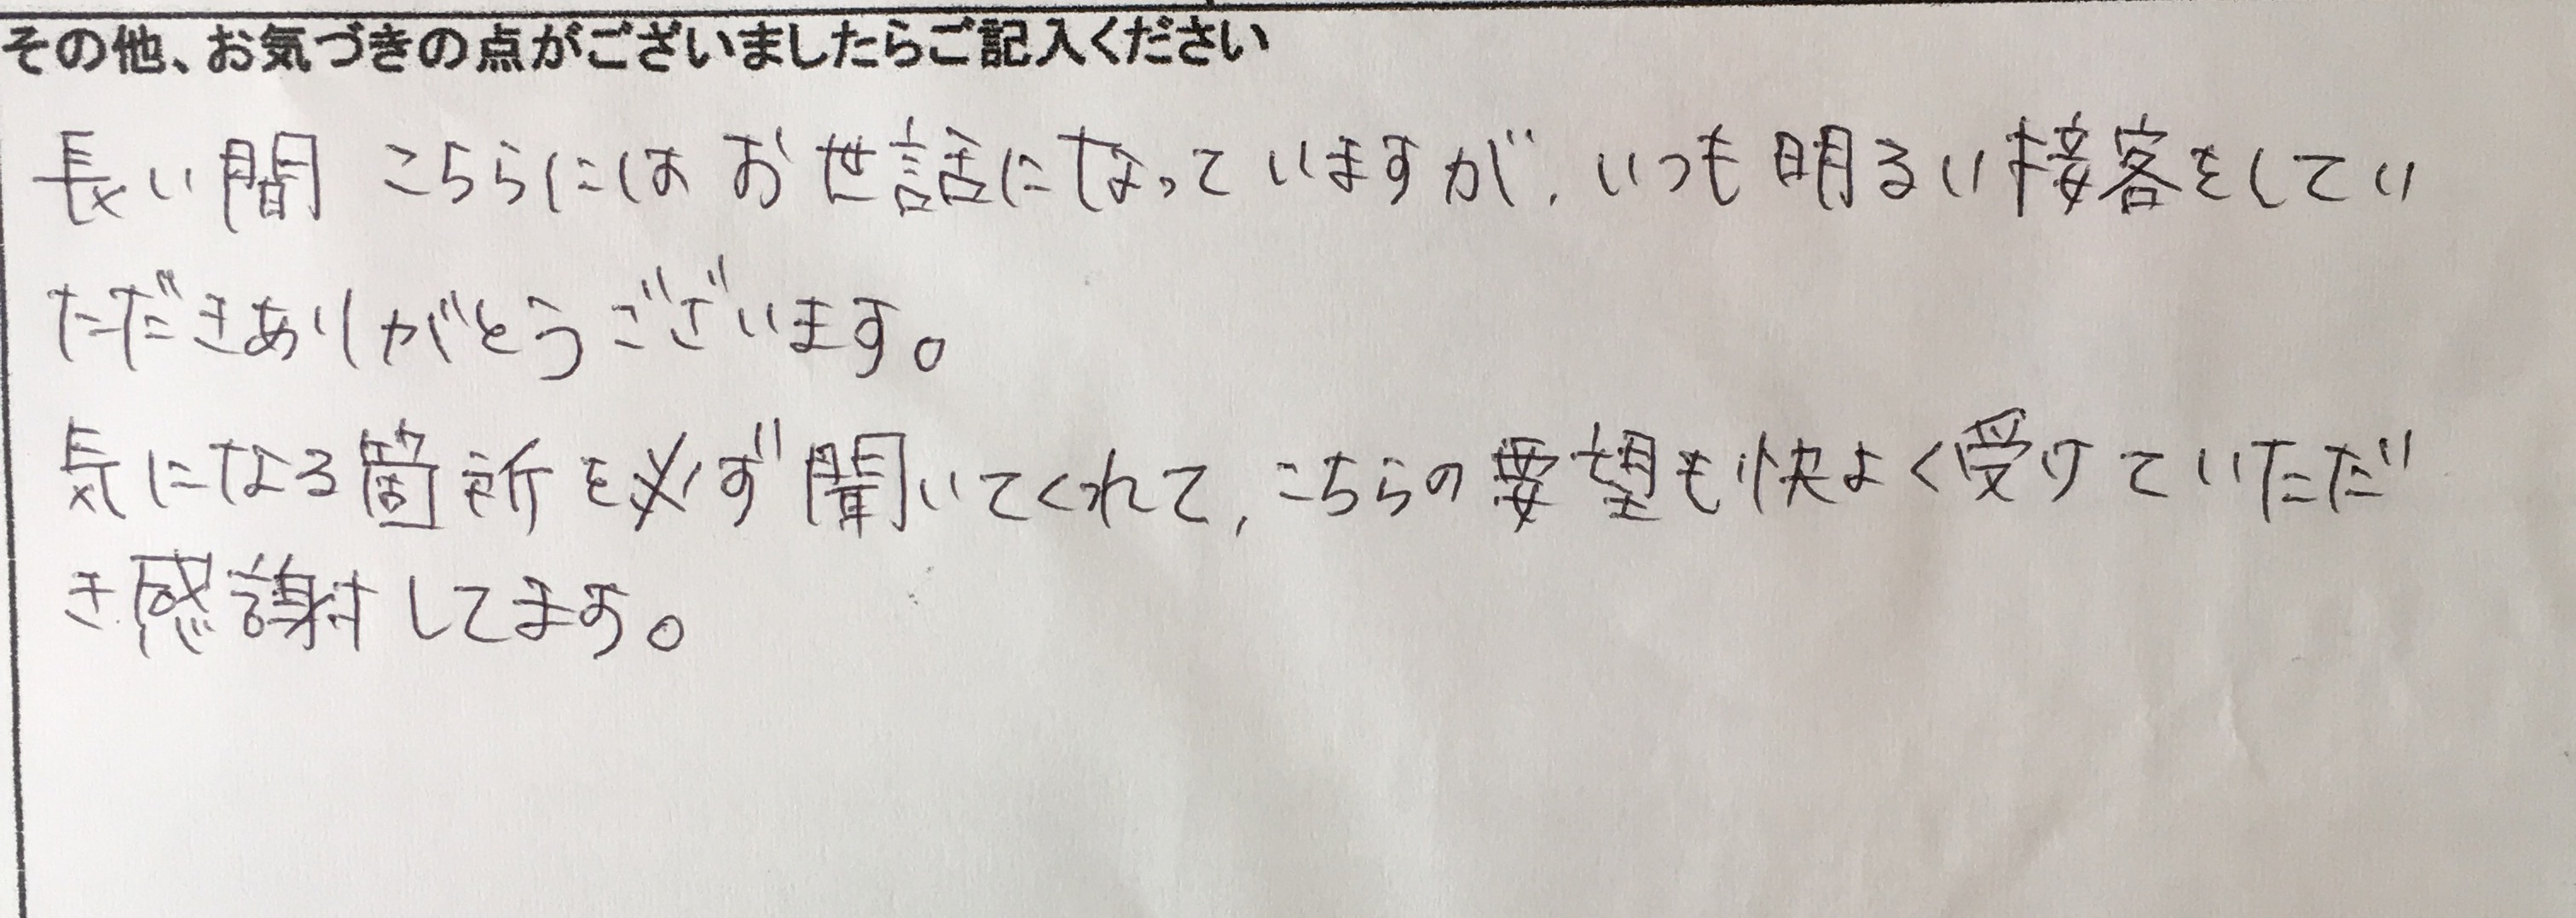 その他、お気づきの点がございましたらご記入ください
長い間 こちらには お世話になっていますが、いつも明るい接客をしてい
ただきありがとうございます。
気になる箇所を必ず聞いてくれて、こちらの要望も快よく受けていただ
き感謝してます。